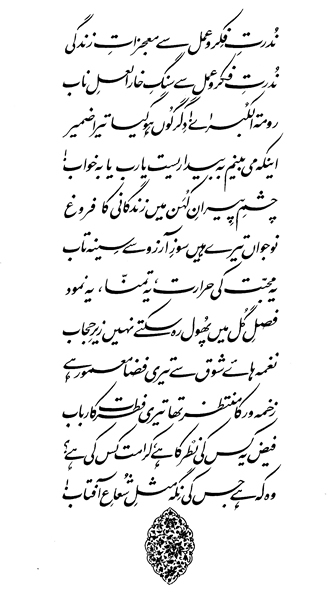 ندرتِ فکر و عمل سے معجزاتِ زندگی
ندرتِ فکر و عمل سے سنگِ خارا لعلِ ناب
رومۃ الکبریٰ! دگرگوں ہو گیا تیرا ضمیر
اینکہ می بینم بہ بیداریست یا رب یا بہ خواب!
چشمِ پیرانِ کہن میں زندگانی کا فروغ
نوجواں تیرے ہیں سوزِ آرزو سے سینہ تاب
یہ محبت کی حرارت، یہ تمنّا، یہ نمود
فصلِ گل میں پھول رہ سکتے نہیں زیرِ حجاب
نغمہ ہائے شوق سے تیری فضا معمور ہے
زخمہ ور کا منتظر تھا تیری فطرت کا رباب
فیض یہ کس کی نظر کا ہے، کرامت کس کی ہے؟
وہ کہ ہے جس کی نگہ مثلِ شعاعِ آفتاب!